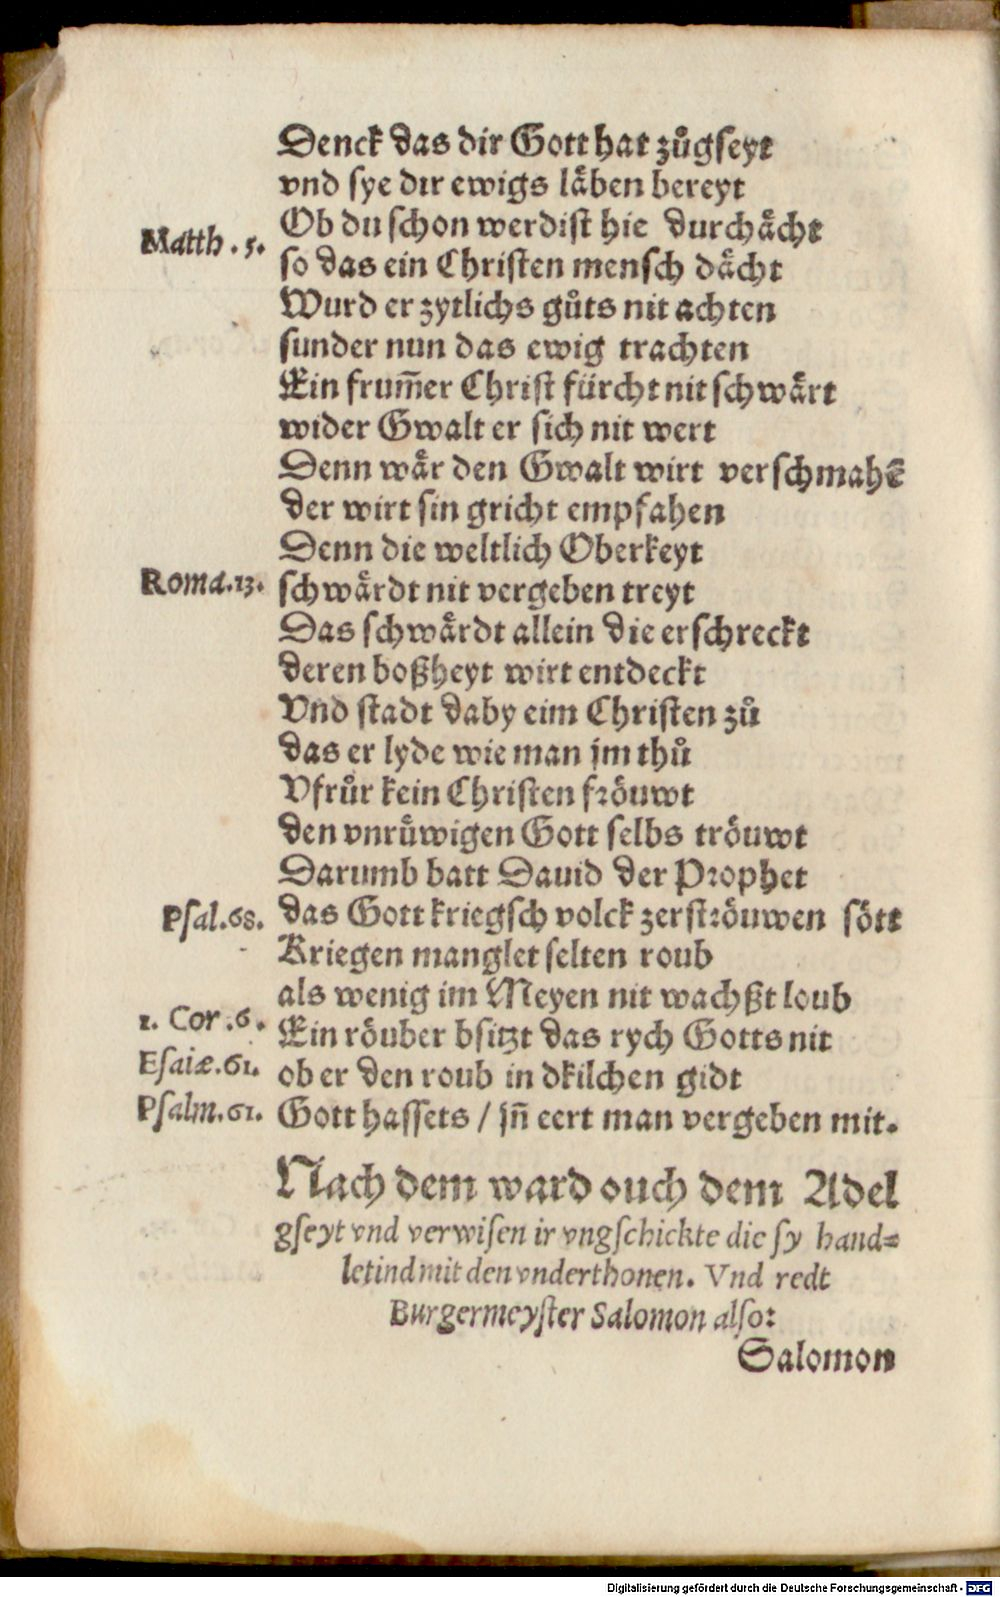 Denck das dir Gott hat zůgseyt
vnd sye dir ewigs läben bereyt
Ob du schon werdist hie durchächt
Matth. 5.
so das ein Christen mensch dächt
Wurd er zytlichs gůts nit achten
sunder nun das ewig trachten
Ein frum̄er Christ fürcht nit schwärt
wider Gwalt er sich nit wert
Denn wär den Gwalt wirt verschmahē
der wirt sin gricht empfahen
Denn die weltlich Oberkeyt
Roma. 13. schwärdt nit vergeben treyt
Das schwärdt allein die erschreckt
deren boßheyt wirt entdeckt
Vnd stadt daby eim Christen zů
das er lyde wie man jm thů
Vfrůr kein Christen fröuwt
den vnrůwigen Gott selbs tröuwt
Darumb batt Dauid der Prophet
Psal. 68. das Gott kriegsch volck zerströuwen sött
Kriegen manglet selten roub
als wenig im Meyen nit wachßt loub
1. Cor. 6. Ein röuber bsitzt das rych Gotts nit
Esaiæ. 61. ob er den roub in dkilchen gidt
Psalm. 61. Gott hassets / jn̄ eert man vergeben mit.
Nach dem ward ouch dem Adel
gseyt vnd verwisen ir vngschickte die sy hand=
letind mit den vnderthonen. Vnd redt
Burgermeyster Salomon also:
Salomon
Digitalisierung gefördert durch die Deutsche Forschungsgemeinschaft - DFG